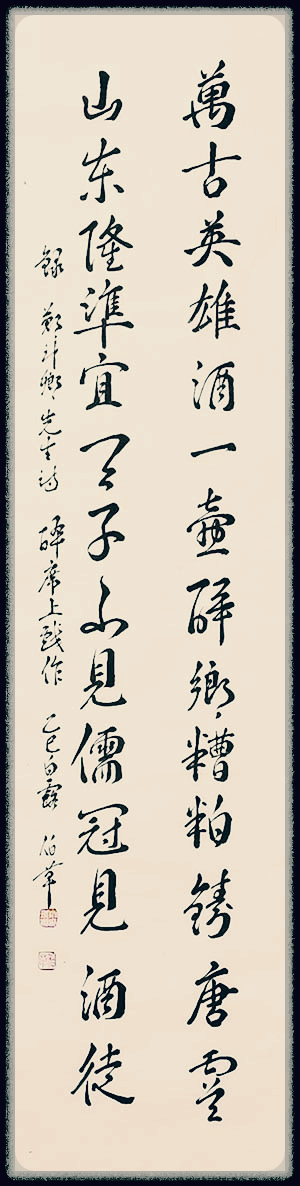 萬古英雄酒一壺醉鄉糟粕鑄唐虞
山東隆準宜天子不見儒冠見酒徒
錄 鄭卿先生詩 醉席上戲作 乙巳白露 伯